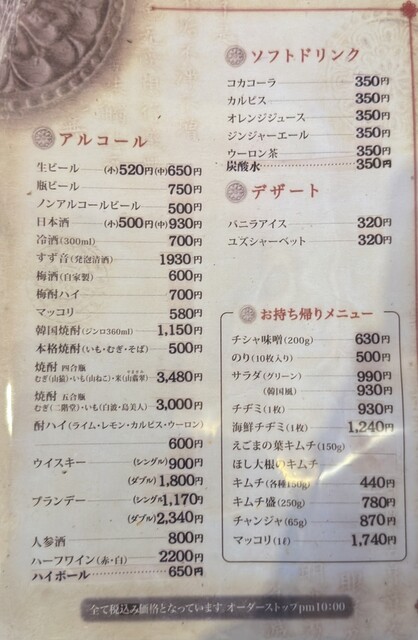 アルコール
生ビール (小)520円(中)650円
瓶ビール 750円
ノンアルコールビール 500円
日本酒 (小)500円(中)930円
冷酒(300ml) 700円
すず音(発泡清酒) 1930円
梅酒(自家製) 600円
梅酎ハイ 700円
マッコリ 580円
韓国焼酎(ジンロ360ml) 1,150円
本格焼酎(いも・むぎ・そば) 500円
焼酎 四合瓶
むぎ(山猿)・いも(山ねこ)・米(山翡翠) 3,480円
焼酎 五合瓶
むぎ(二階堂)・いも(白波・島美人) 3,000円
酎ハイ(ライム・レモン・カルピス・ウーロン)
600円
ウイスキー (シングル)900円
(ダブル)1,800円
ブランデー (シングル)1,170円
(ダブル)2,340円
人参酒 800円
ハーフワイン(赤・白) 2200円
ハイボール 650円
ソフトドリンク
コカコーラ 350円
カルピス 350円
オレンジジュース 350円
ジンジャーエール 350円
ウーロン茶 350円
炭酸水 350円
デザート
バニラアイス 320円
ユズシャーベット 320円
お持ち帰りメニュー
チシャ味噌(200g) 630円
のり(10枚入り) 500円
サラダ(グリーン) 990円
(韓国風) 930円
チヂミ(1枚) 930円
海鮮チヂミ(1枚) 1,240円
えごまの葉キムチ(150g)
ほし大根のキムチ
キムチ(各種150g) 440円
キムチ盛(250g) 780円
チャンジャ(65g) 870円
マッコリ(1ℓ) 1,740円
全て税込み価格となっています。オーダーストップpm10:00